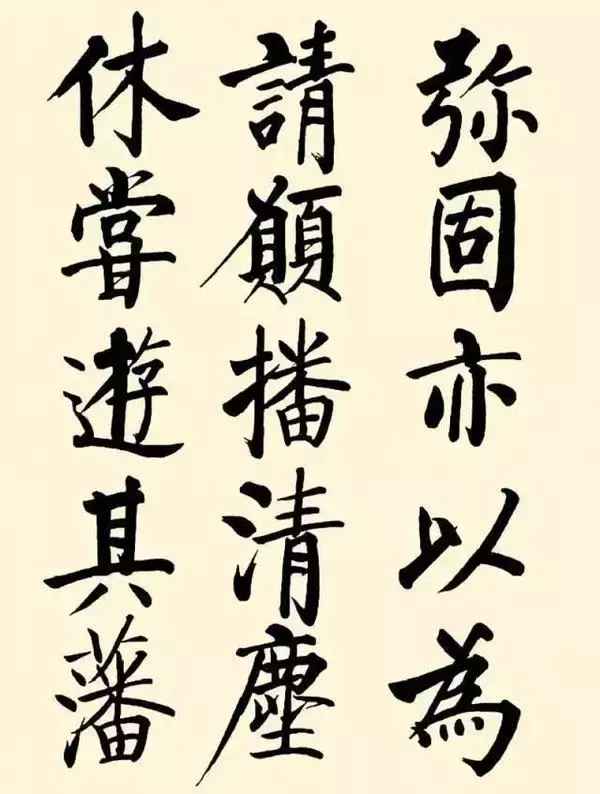 弥固亦以为
請願播清塵
休甞遊其藩